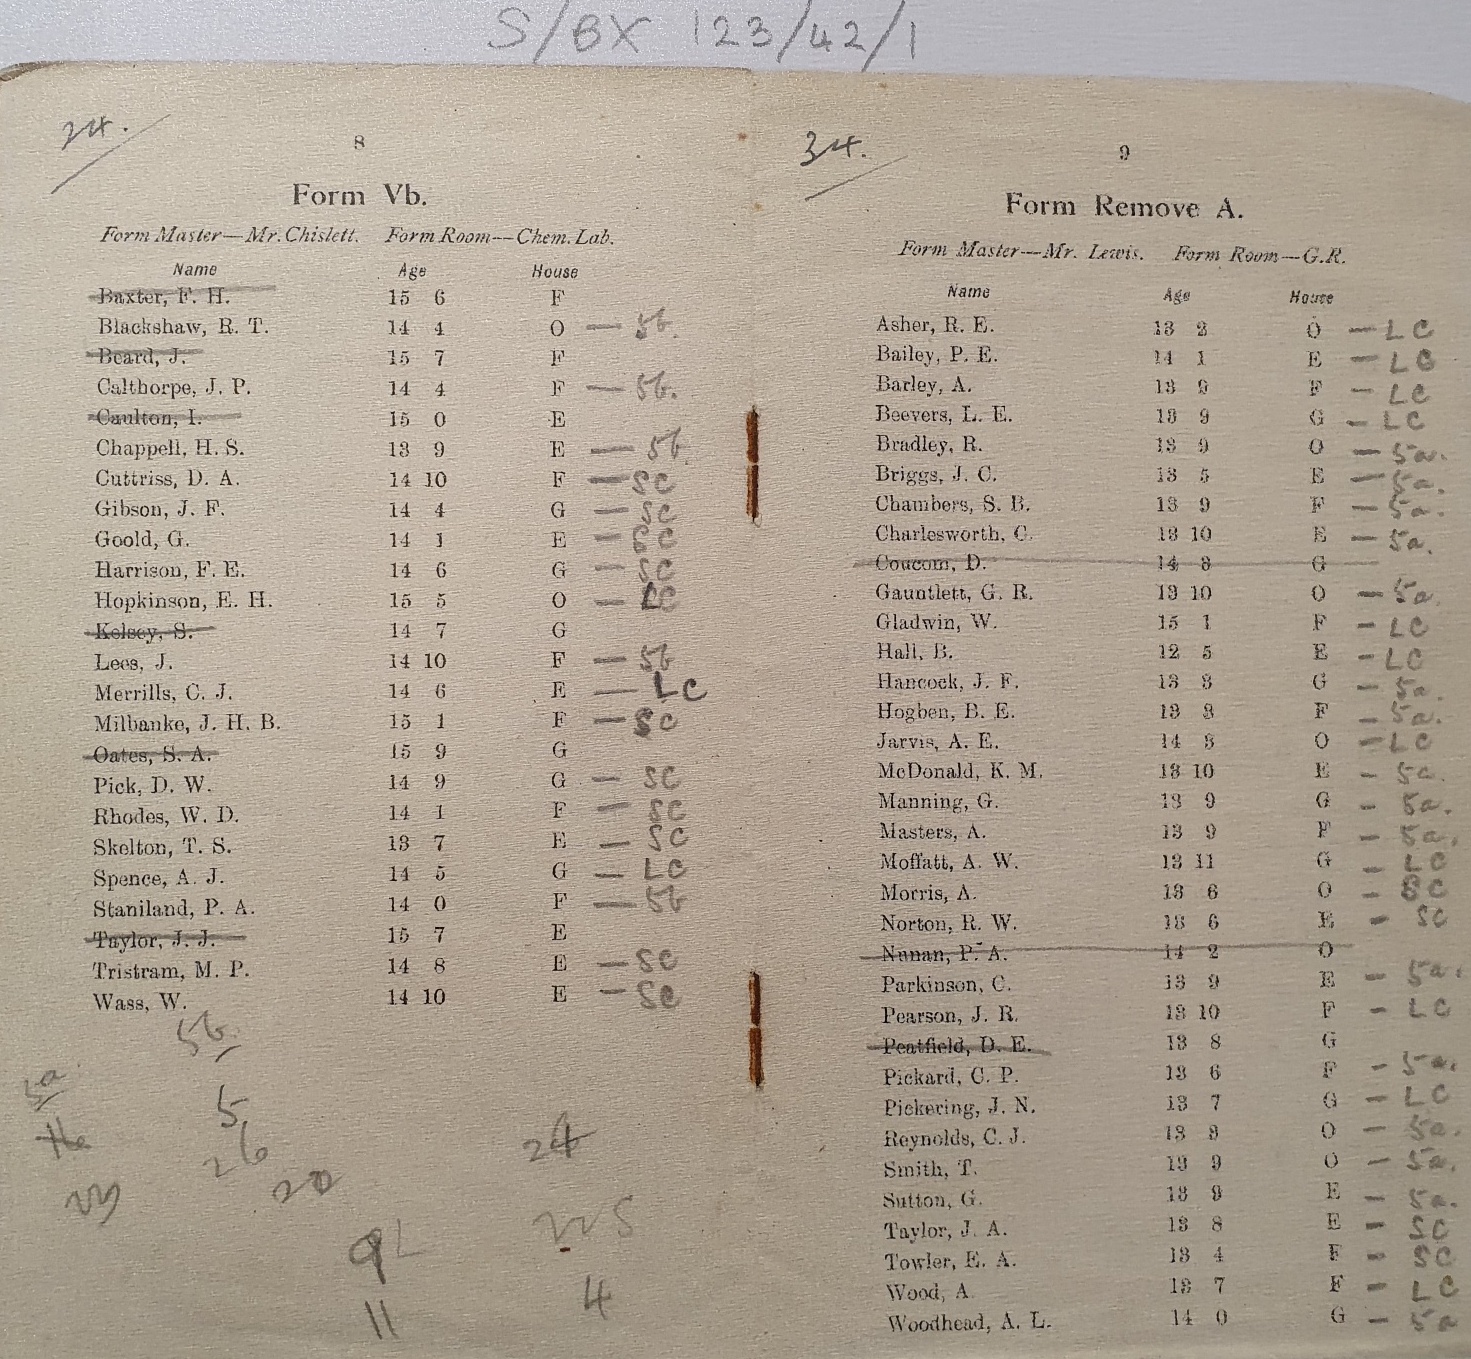 S/BX 123/42/1
24.
8
Form Vb.
Form Master—Mr. Chislett. Form Room—Chem. Lab.
Name Age House
Baxter, F. H. 15 6 F
Blackshaw, R. T. 14 4 O — 5b.
Beard, J. 15 7 F
Calthorpe, J. P. 14 4 F — 5b.
Caulton, I. 15 0 E
Chappell, H. S. 13 9 E — 5b
Cuttriss, D. A. 14 10 F — SC
Gibson, J. F. 14 4 G — SC
Goold, G. 14 1 E — SC
Harrison, F. E. 14 6 G — SC
Hopkinson, E. H. 15 5 O — LC
Kelsey, S. 14 7 G
Lees, J. 14 10 F — 5b
Merrills, C. J. 14 6 E — LC
Milbanke, J. H. B. 15 1 F — SC
Oates, S. A. 15 9 G
Pick, D. W. 14 9 G — SC
Rhodes, W. D. 14 1 F — SC
Skelton, T. S. 13 7 E — SC
Spence, A. J. 14 5 G — LC
Staniland, P. A. 14 0 F — 5b
Taylor, J. J. 15 7 E
Tristram, M. P. 14 8 E — SC
Wass, W. 14 10 E — SC
5b
5a
5
26
20
24
9 L
22 S
11
4
34.
9
Form Remove A.
Form Master—Mr. Lewis. Form Room—G.R.
Name Age House
Asher, R. E. 13 2 O — LC
Bailey, P. E. 14 1 E — LC
Barley, A. 13 9 F — LC
Beevers, L. E. 13 9 G — LC
Bradley, R. 13 9 O — 5a.
Briggs, J. C. 13 5 E — 5a.
Chambers, S. B. 13 9 F — 5a.
Charlesworth, C. 13 10 E — 5a.
Coucom, D. 14 3 G
Gauntlett, G. R. 13 10 O — 5a.
Gladwin, W. 15 1 F — LC
Hall, B. 12 5 E — LC
Hancock, J. F. 13 3 G — 5a.
Hogben, B. E. 13 3 F — 5a.
Jarvis, A. E. 14 3 O — LC
McDonald, K. M. 13 10 E — 5a.
Manning, G. 13 9 G — 5a.
Masters, A. 13 9 F — 5a.
Moffatt, A. W. 13 11 G — LC
Morris, A. 13 6 O — SC
Norton, R. W. 13 6 E — SC
Nunan, P. A. 14 2 O
Parkinson, C. 13 9 E — 5a.
Pearson, J. R. 13 10 F — LC
Peatfield, D. E. 13 8 G
Pickard, C. P. 13 6 F — 5a.
Pickering, J. N. 13 7 G — LC
Reynolds, C. J. 13 3 O — 5a.
Smith, T. 13 9 O — 5a.
Sutton, G. 13 9 E — 5a.
Taylor, J. A. 13 8 E — SC
Towler, E. A. 13 4 F — SC
Wood, A. 13 7 F — LC
Woodhead, A. L. 14 0 G — 5a